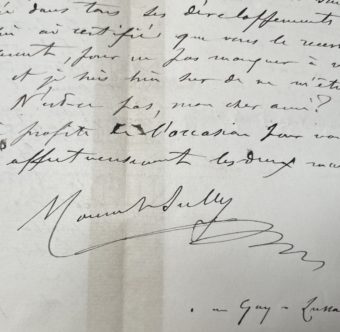 dans tous ses développements
certifié que vous le
pour ne pas manquer à
et je suis bien sûr de ne m'être
N'est-ce pas, mon cher ami ?
profite de l'occasion pour
affectueusement les deux
Mounet Sully
Gay-Lussac